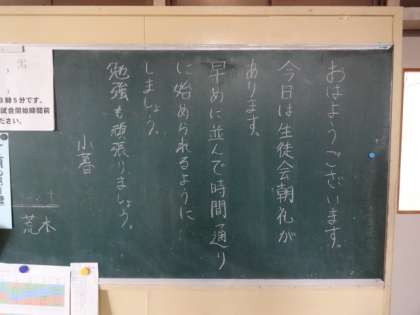 おはようございます。
今日は生徒会朝礼が
あります。
早めに並んで時間通り
に始められるように
しましょう。
勉強も頑張りましょう。
小暮
荒木
8時5分です。
試会開始時間前
ださい。